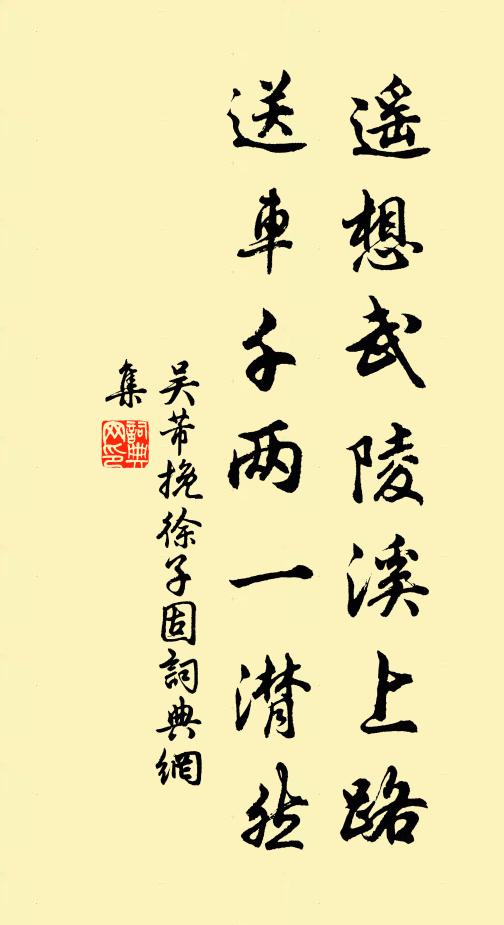 遥想武陵溪上路
送車千两一潸然
吴芾挽徐子固詞典網
集
詞典
网印